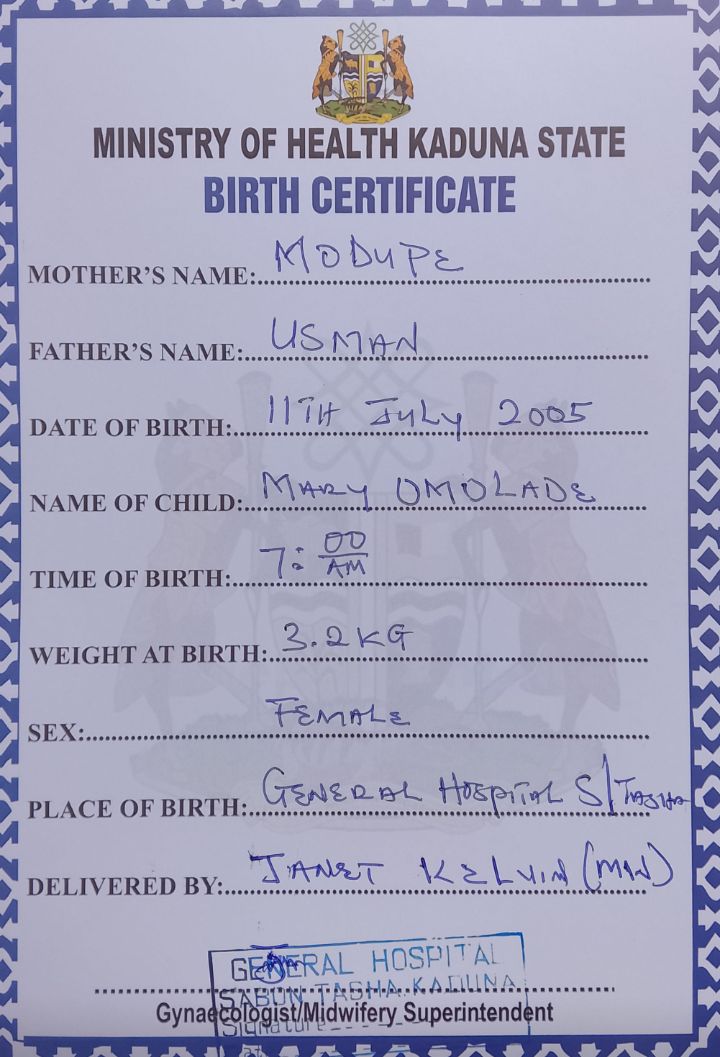 MINISTRY OF HEALTH KADUNA STATE
BIRTH CERTIFICATE
MOTHER'S NAME: MODUPE
FATHER'S NAME: USMAN
DATE OF BIRTH: 11TH JULY 2005
NAME OF CHILD: MARY OMOLADE
TIME OF BIRTH: 7:00 AM
WEIGHT AT BIRTH: 3.2KG
SEX: FEMALE
PLACE OF BIRTH: GENERAL HOSPITAL S/TASHA
DELIVERED BY: JANET KELVIN (MW)
GENERAL HOSPITAL
SABON TASHA KADUNA
Gynaecologist/Midwifery Superintendent
Signature